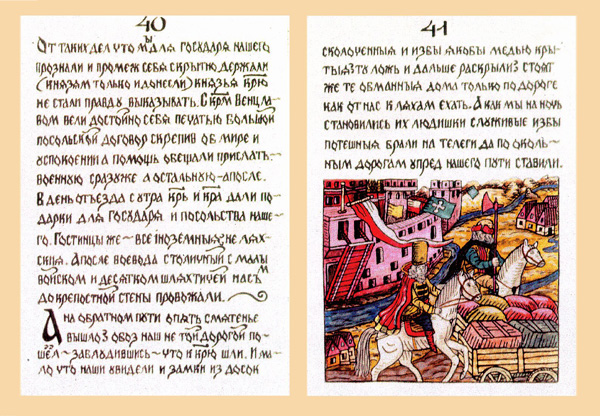 40
От таких дел что мы для государя нашего
прознали и промеж себя скрытно держали
(князям только и донесли) князья крю
не стали правду выказывать. С крм Венцла
вом вели достойно себя печатью большой
посольской договор скрепив об мире и
успокоении а помощь обещали прислать:
военную сразу же а остальную-апосле.
В день отъезда с утра крь и кра дали по-
дарки для государя и посольства наше-
го. Гостинцы же-все иноземныя, не ляж-
ския. А после воевода столичный с малы
войском и десятком шляхтичей нас м
до крепостной стены провожали.
А на обратном пути опять смятенье
вышло з обоз наш не той дорогой по-
шёл-заблудившись-что к крю шли. И ма-
ло что наши увидели и замки из досок
41
сколоченныя и избы якобы медью кры-
тыя з ту ложь и дальше раскрыли з стоят
же те обманныя дома только по дороге
как от нас к ляхам ехать. А как мы на ночь
становились их людишки служивые избы
потешныя брали на телеги да по околь-
ным дорогам упред нашего пути ставили.